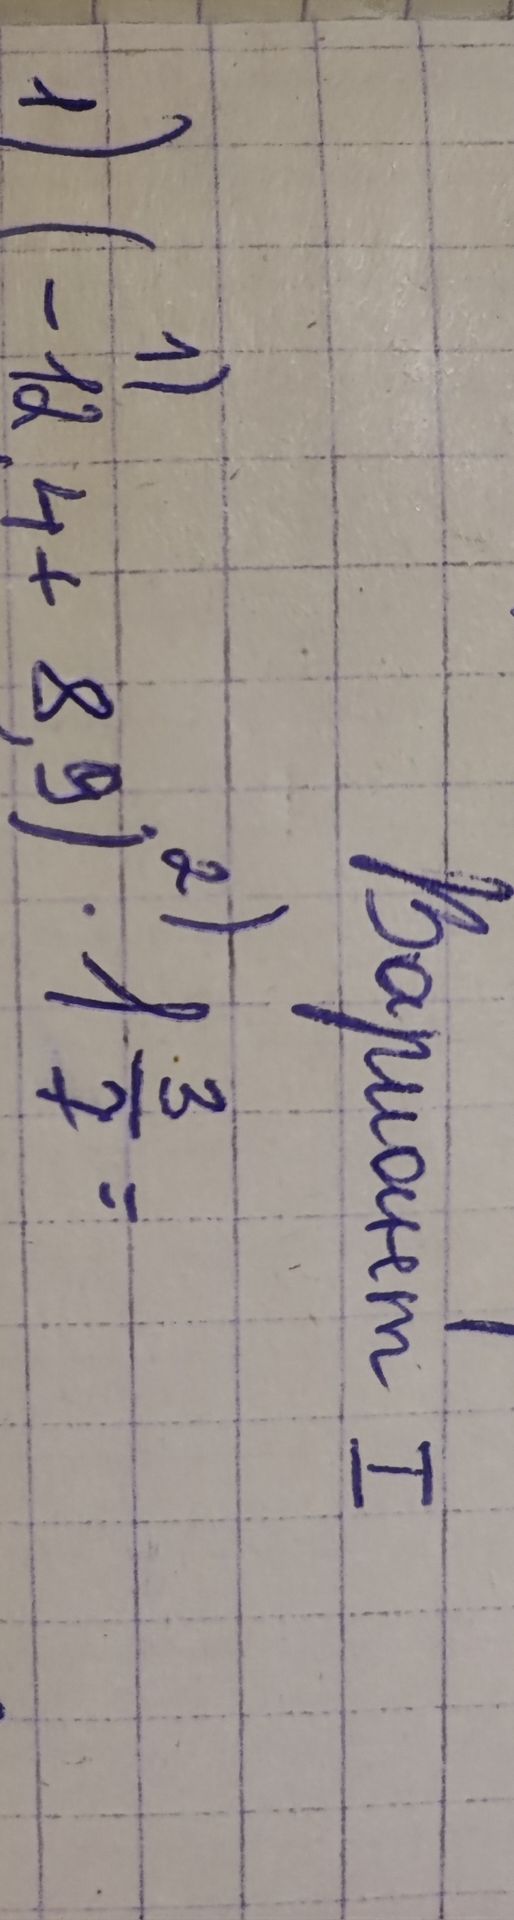 Вариант I
1) 2)
1) (-12,4+ 8,9) · 1 3/7 =